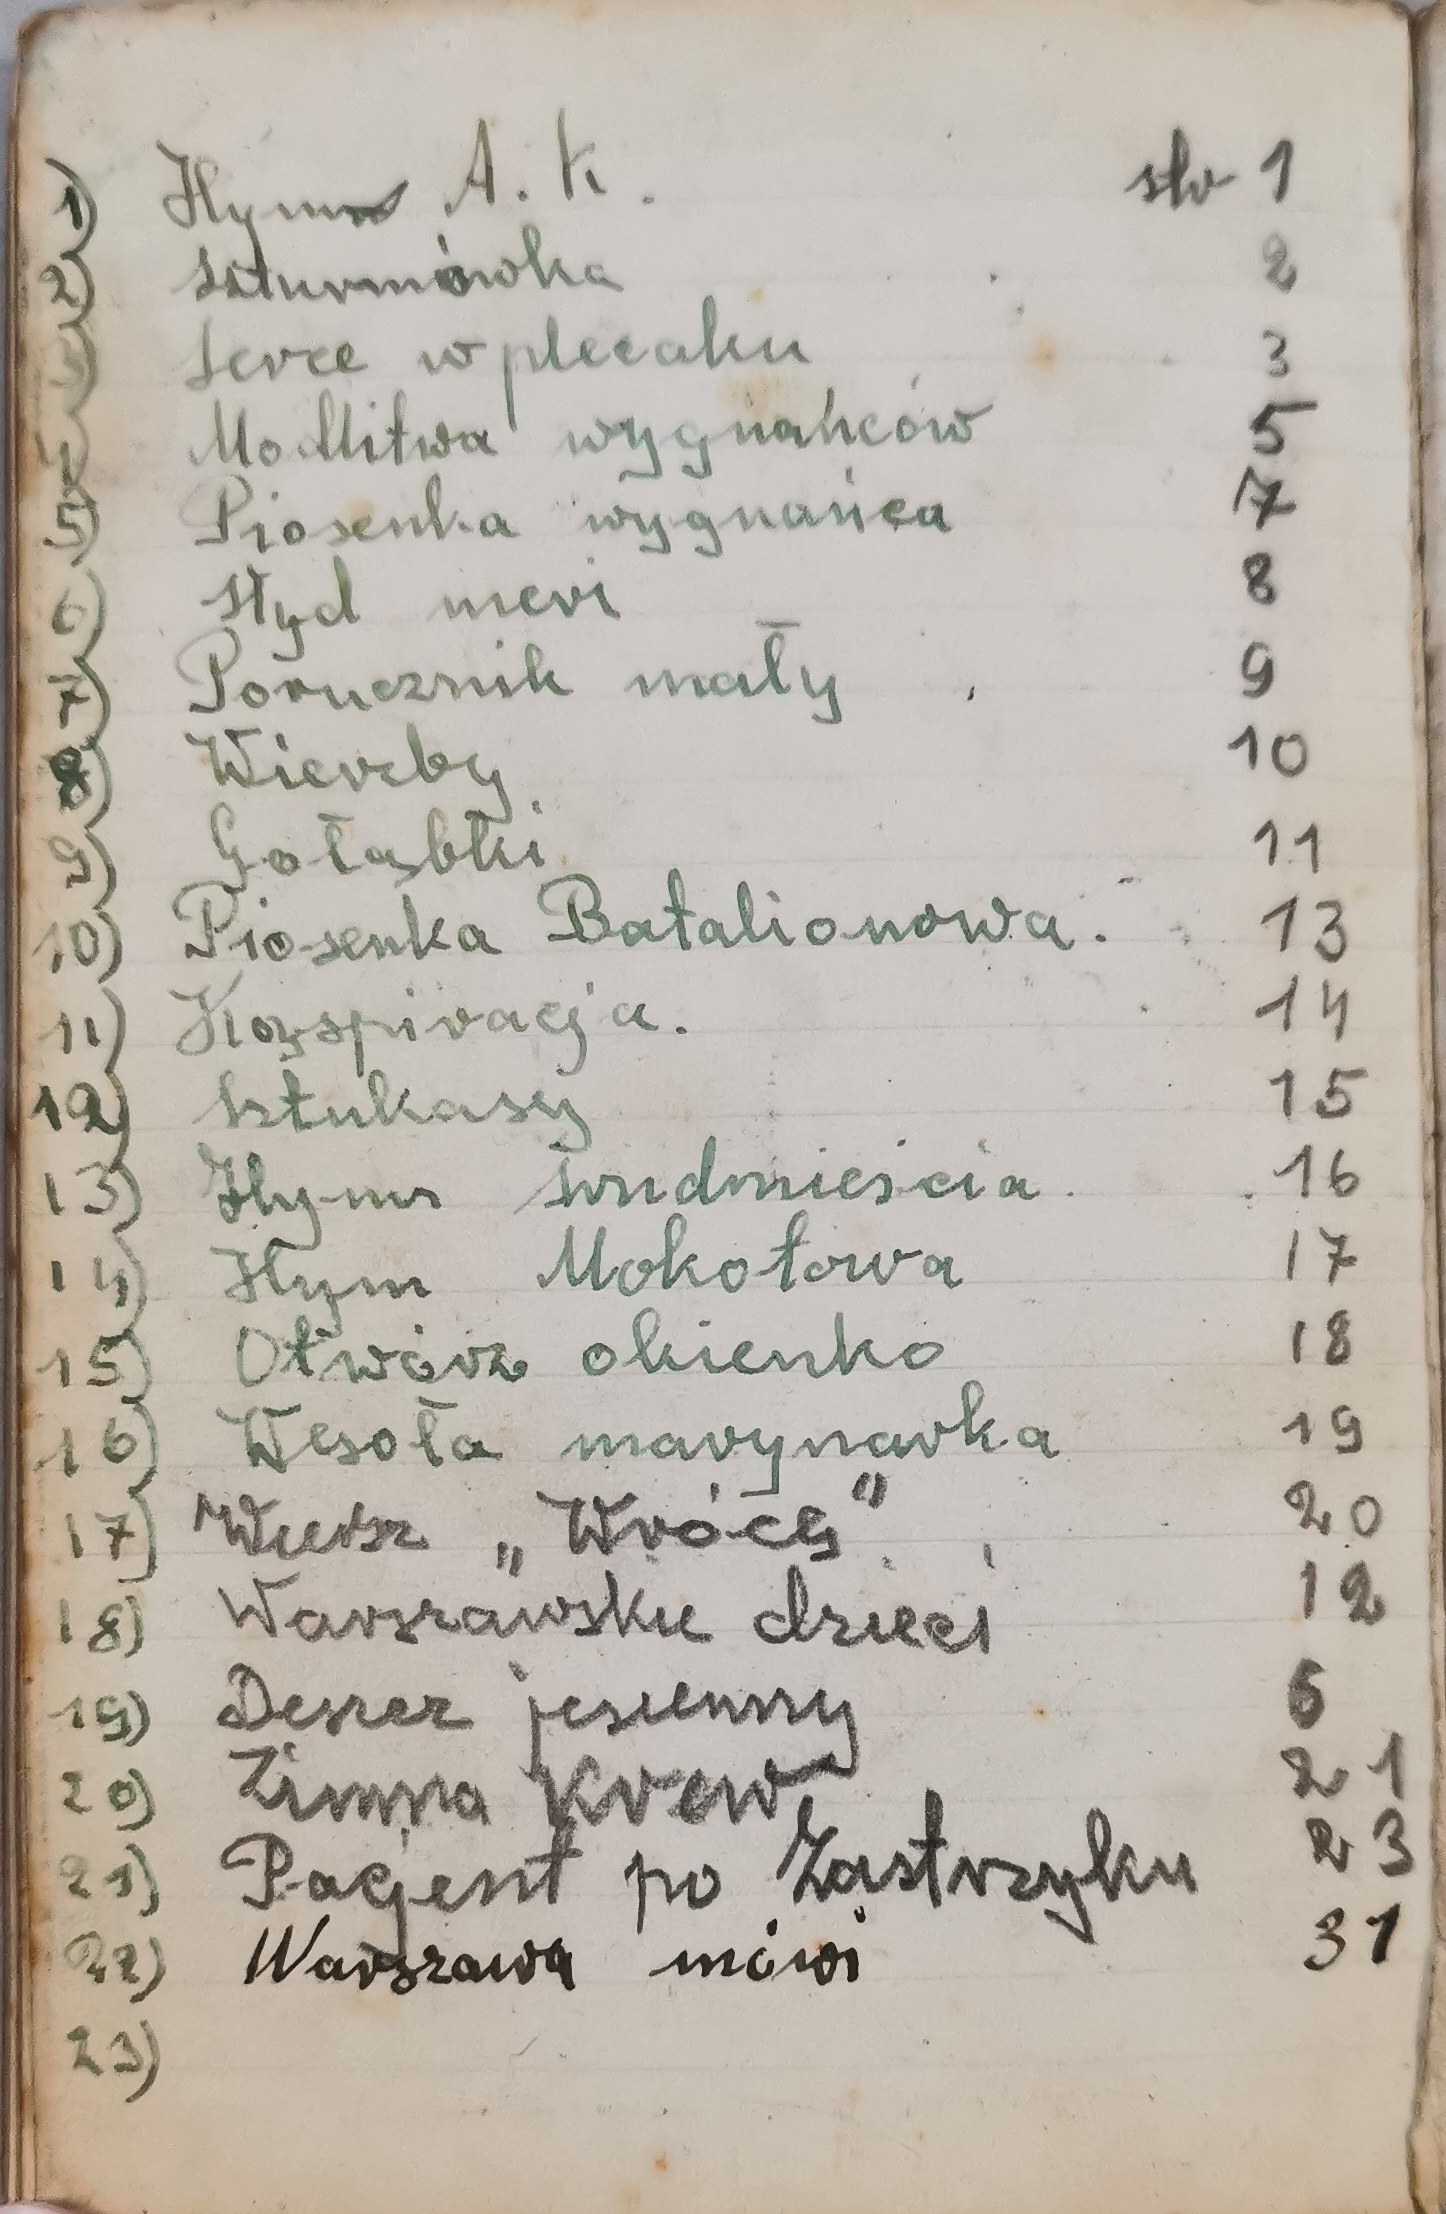 1) Hymn A. K. str 1
2) Szturmówka 2
Serce w plecaku 3
Modlitwa wygnańców 5
5) Piosenka wygnańca 7
6) Styd meri 8
7) Porucznik mały 9
8) Wierzby 10
9) Gołąbki 11
10) Piosenka Batalionowa. 13
11) Konspiracja. 14
12) Sztukasy 15
13) Hymn Śrudmieścia 16
14) Hym Mokotowa 17
15) Otwórz okienko 18
16) Wesoła marynarka 19
17) Wiersz „Wrócę" 20
18) Warszawskie dzieci 12
19) Deszcz jesienny 6
20) Zimna Krew 21
21) Pacjent po Zastrzyku 23
22) Warszawa mówi 31
23)